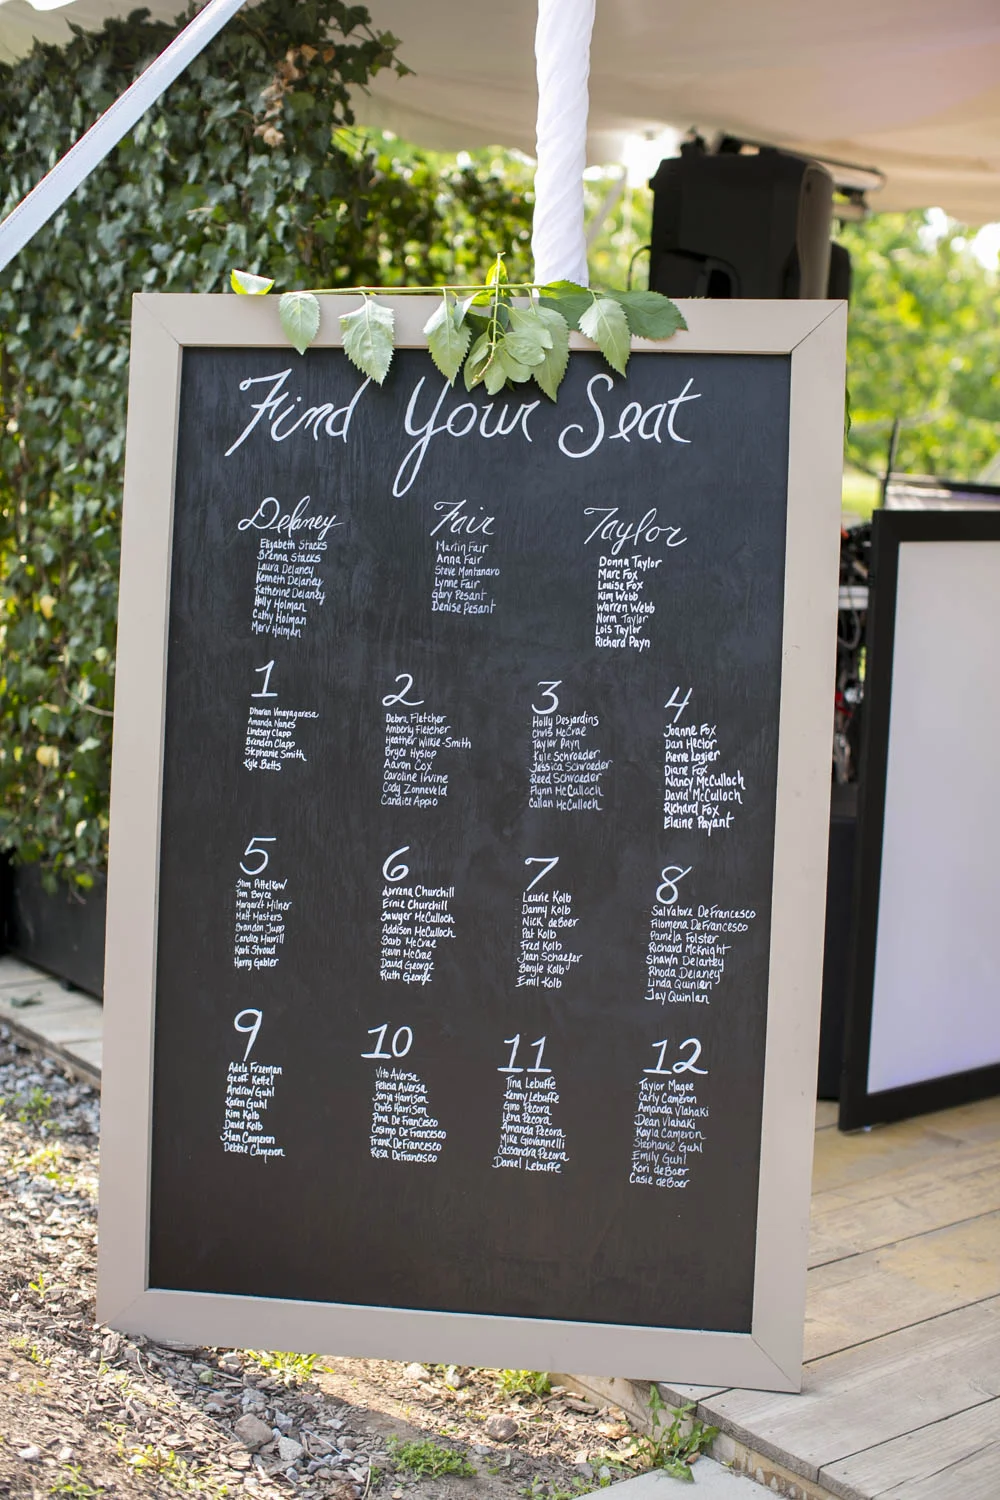 Find Your Seat
Delaney
Elizabeth Stacks
Brenna Stacks
Laura Delaney
Kenneth Delaney
Katherine Delaney
Holly Holman
Cathy Holman
Merv Holman
Fair
Martin Fair
Anna Fair
Steve Montanaro
Lynne Fair
Gary Pesant
Denise Pesant
Taylor
Donna Taylor
Marc Fox
Louise Fox
Kim Webb
Warren Webb
Norm Taylor
Lois Taylor
Richard Payn
1
Dharan
Amanda Nunes
Lindsay Clapp
Brenden Clapp
Stephanie Smith
Kyle Betts
2
Debra Fletcher
Amberly Fletcher
Heather Wilkie-Smith
Bryce Hyslop
Aaron Cox
Caroline Irvine
Cody Zonneveld
Candice Appio
3
Holly Desjardins
Chris McCrae
Taylor Payn
Kyle Schroeder
Jessica Schroeder
Reed Schroeder
Flynn McCulloch
Callan McCulloch
4
Joanne Fox
Dan Hector
Pierre Lozier
Diane Fox
Nancy McCulloch
David McCulloch
Richard Fox
Elaine Payant
5
Pittelkow
Tom Boyce
Margaret Milner
Matt Masters
Brandon Jupp
Candice Harrill
Karli Stroud
Harry Gabler
6
Lorrena Churchill
Ernie Churchill
Sawyer McCulloch
Addison McCulloch
Barb McCrae
Kevin McCrae
David George
Ruth George
7
Laurie Kolb
Danny Kolb
Nick deBoer
Pat Kolb
Fred Kolb
Jean Schaefer
Beryle Kolb
Emil Kolb
8
Salvatore DeFrancesco
Filomena DeFrancesco
Pamela Folster
Richard McKnight
Shawn Delaney
Rhoda Delaney
Linda Quinlan
Jay Quinlan
9
Adele Freeman
Geoff Kettel
Andrew Guhl
Karen Guhl
Kim Kolb
David Kolb
Stan Cameron
Debbie Cameron
10
Vito Aversa
Felicia Aversa
Sonja Harrison
Chris Harrison
Pina De Francesco
Cosimo De Francesco
Frank DeFrancesco
Rosa DeFrancesco
11
Tina Lebuffe
Kenny Lebuffe
Gino Pecora
Lena Pecora
Amanda Pecora
Mike Giovannelli
Cassandra Pecora
Daniel Lebuffe
12
Taylor Magee
Carly Cameron
Amanda Vlahaki
Dean Vlahaki
Kayla Cameron
Stephanie Guhl
Emily Guhl
Kori deBoer
Casie deBoer